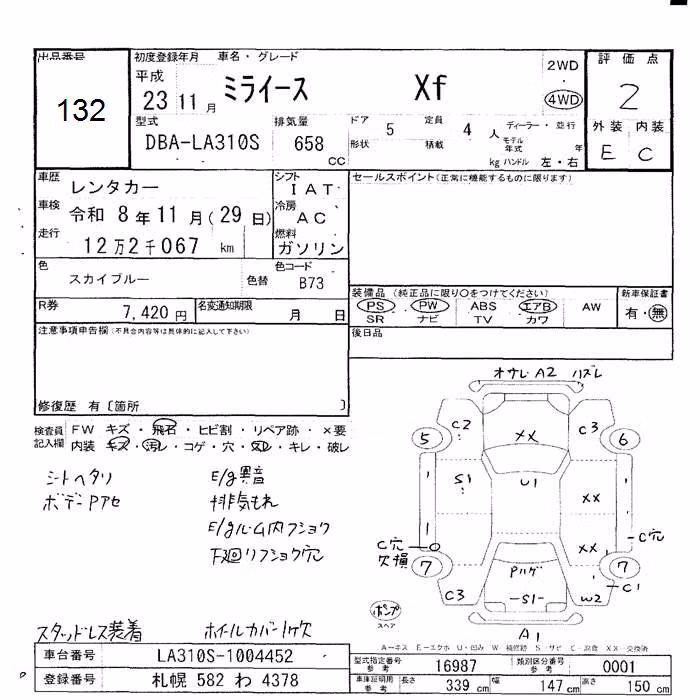 出品番号
132
初度登録年月 車名・グレード
平成 23 11月 ミライース Xf
2WD
4WD
型式 DBA-LA310S
排気量 658 CC
ドア 5 定員 4 人
形状 積載 kg
ディーラー・並行
モデル年式 年
ハンドル 左・右
評価点
2
外装 内装
E C
車歴 レンタカー
車検 令和 8年11月(29日)
走行 12万2千067 km
シフト IAT
冷房 AC
燃料 ガソリン
セールスポイント(正常に機能するものに限ります)
色 スカイブルー 色替
色コード B73
R券 7,420円
名変通知期限 月 日
装備品 (純正品に限り○をつけてください)
PS PW ABS エアB AW
SR ナビ TV カワ
新車保証書
有・無
注意事項申告欄(不具合内容等は具体的に記入して下さい)
後日品
修復歴 有〔箇所 〕
検査員記入欄
FW キズ・飛石・ヒビ割・リペア跡・×要
内装 キズ・汚レ・コゲ・穴・スレ・キレ・破レ
シートヘタリ
ボデーPアセ
E/g異音
排気もれ
E/gルーム内フショク
下廻リフショク穴
スタッドレス装着
ホイールカバー1ケ欠
オサレA2 ハズレ
C2 XX C3
5 6
S1 U1 XX
C穴 欠損
XX C穴
7 7
C3 Pハゲ W2 C1
S1
ポンプ
スペア
A1
A…キズ E…エクボ U…凹み W…補修跡 S…サビ C…腐食 XX…交換済
車台番号 LA310S-1004452
登録番号 札幌 582 わ 4378
型式指定番号 参考 16987
類別区分番号 参考 0001
車庫証明用 参考 長さ 339cm 幅 147cm 高さ 150cm